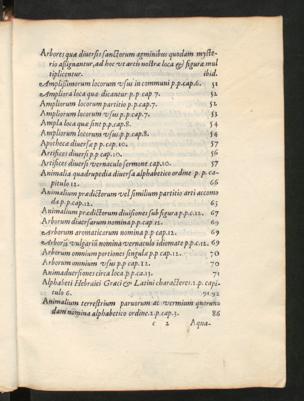 Arbores quæ diuersis sanctorum agminibus quodam myste-
rio asignantur, ad hoc vt artis nostræ loca & figuræ mul
tiplicentur. ibid.
Amplissimorum locorum vsus in communi p.p.cap.6. 51
Ampliora loca quæ dicantur p.p.cap.7. 52
Ampliorum locorum partitio p.p.cap.7. 52
Ampliorum locorum vsus p.p.cap.7. 53
Ampla loca quæ sint p.p.cap.8. 54
Ampliorum locorum vsus p.p.cap.8. 54
Apothecæ diuersæ p.p. cap.10. 57
Artifices diuersi p.p cap.10. 56
Artifices diuersi vernaculo sermone cap.10. 57
Animalia quadrupedia diuersa alphabetico ordine p.p. ca-
pitulo 12. 66
Animalium prædictorum vel similium partitio arti accomo
da p.p.cap.12. 65
Animalium prædictorum diuisiones sub figura p.p.c.12. 67
Arborum diuersarum nomina p.p.cap.12. 69
Arborum aromaticarum nomina p.p cap.12. 69
Arborū vulgariū nomina vernaculo idiomate p.p.c.12. 69
Arborum omnium portiones singulæ p.p cap.12. 70
Arborum omnium vsus p.p cap.12. 70
Animaduersiones circa loca p.p.ca.13. 71
Alphabeti Hebraici Græci & Latini characteres.2.p. capi-
culo 6. 91.92
Animalium terrestrium paruorum ac vermium quorun-
dam nomina alphabetico ordine.2.p.cap.3. 86
c 2 Aqua-